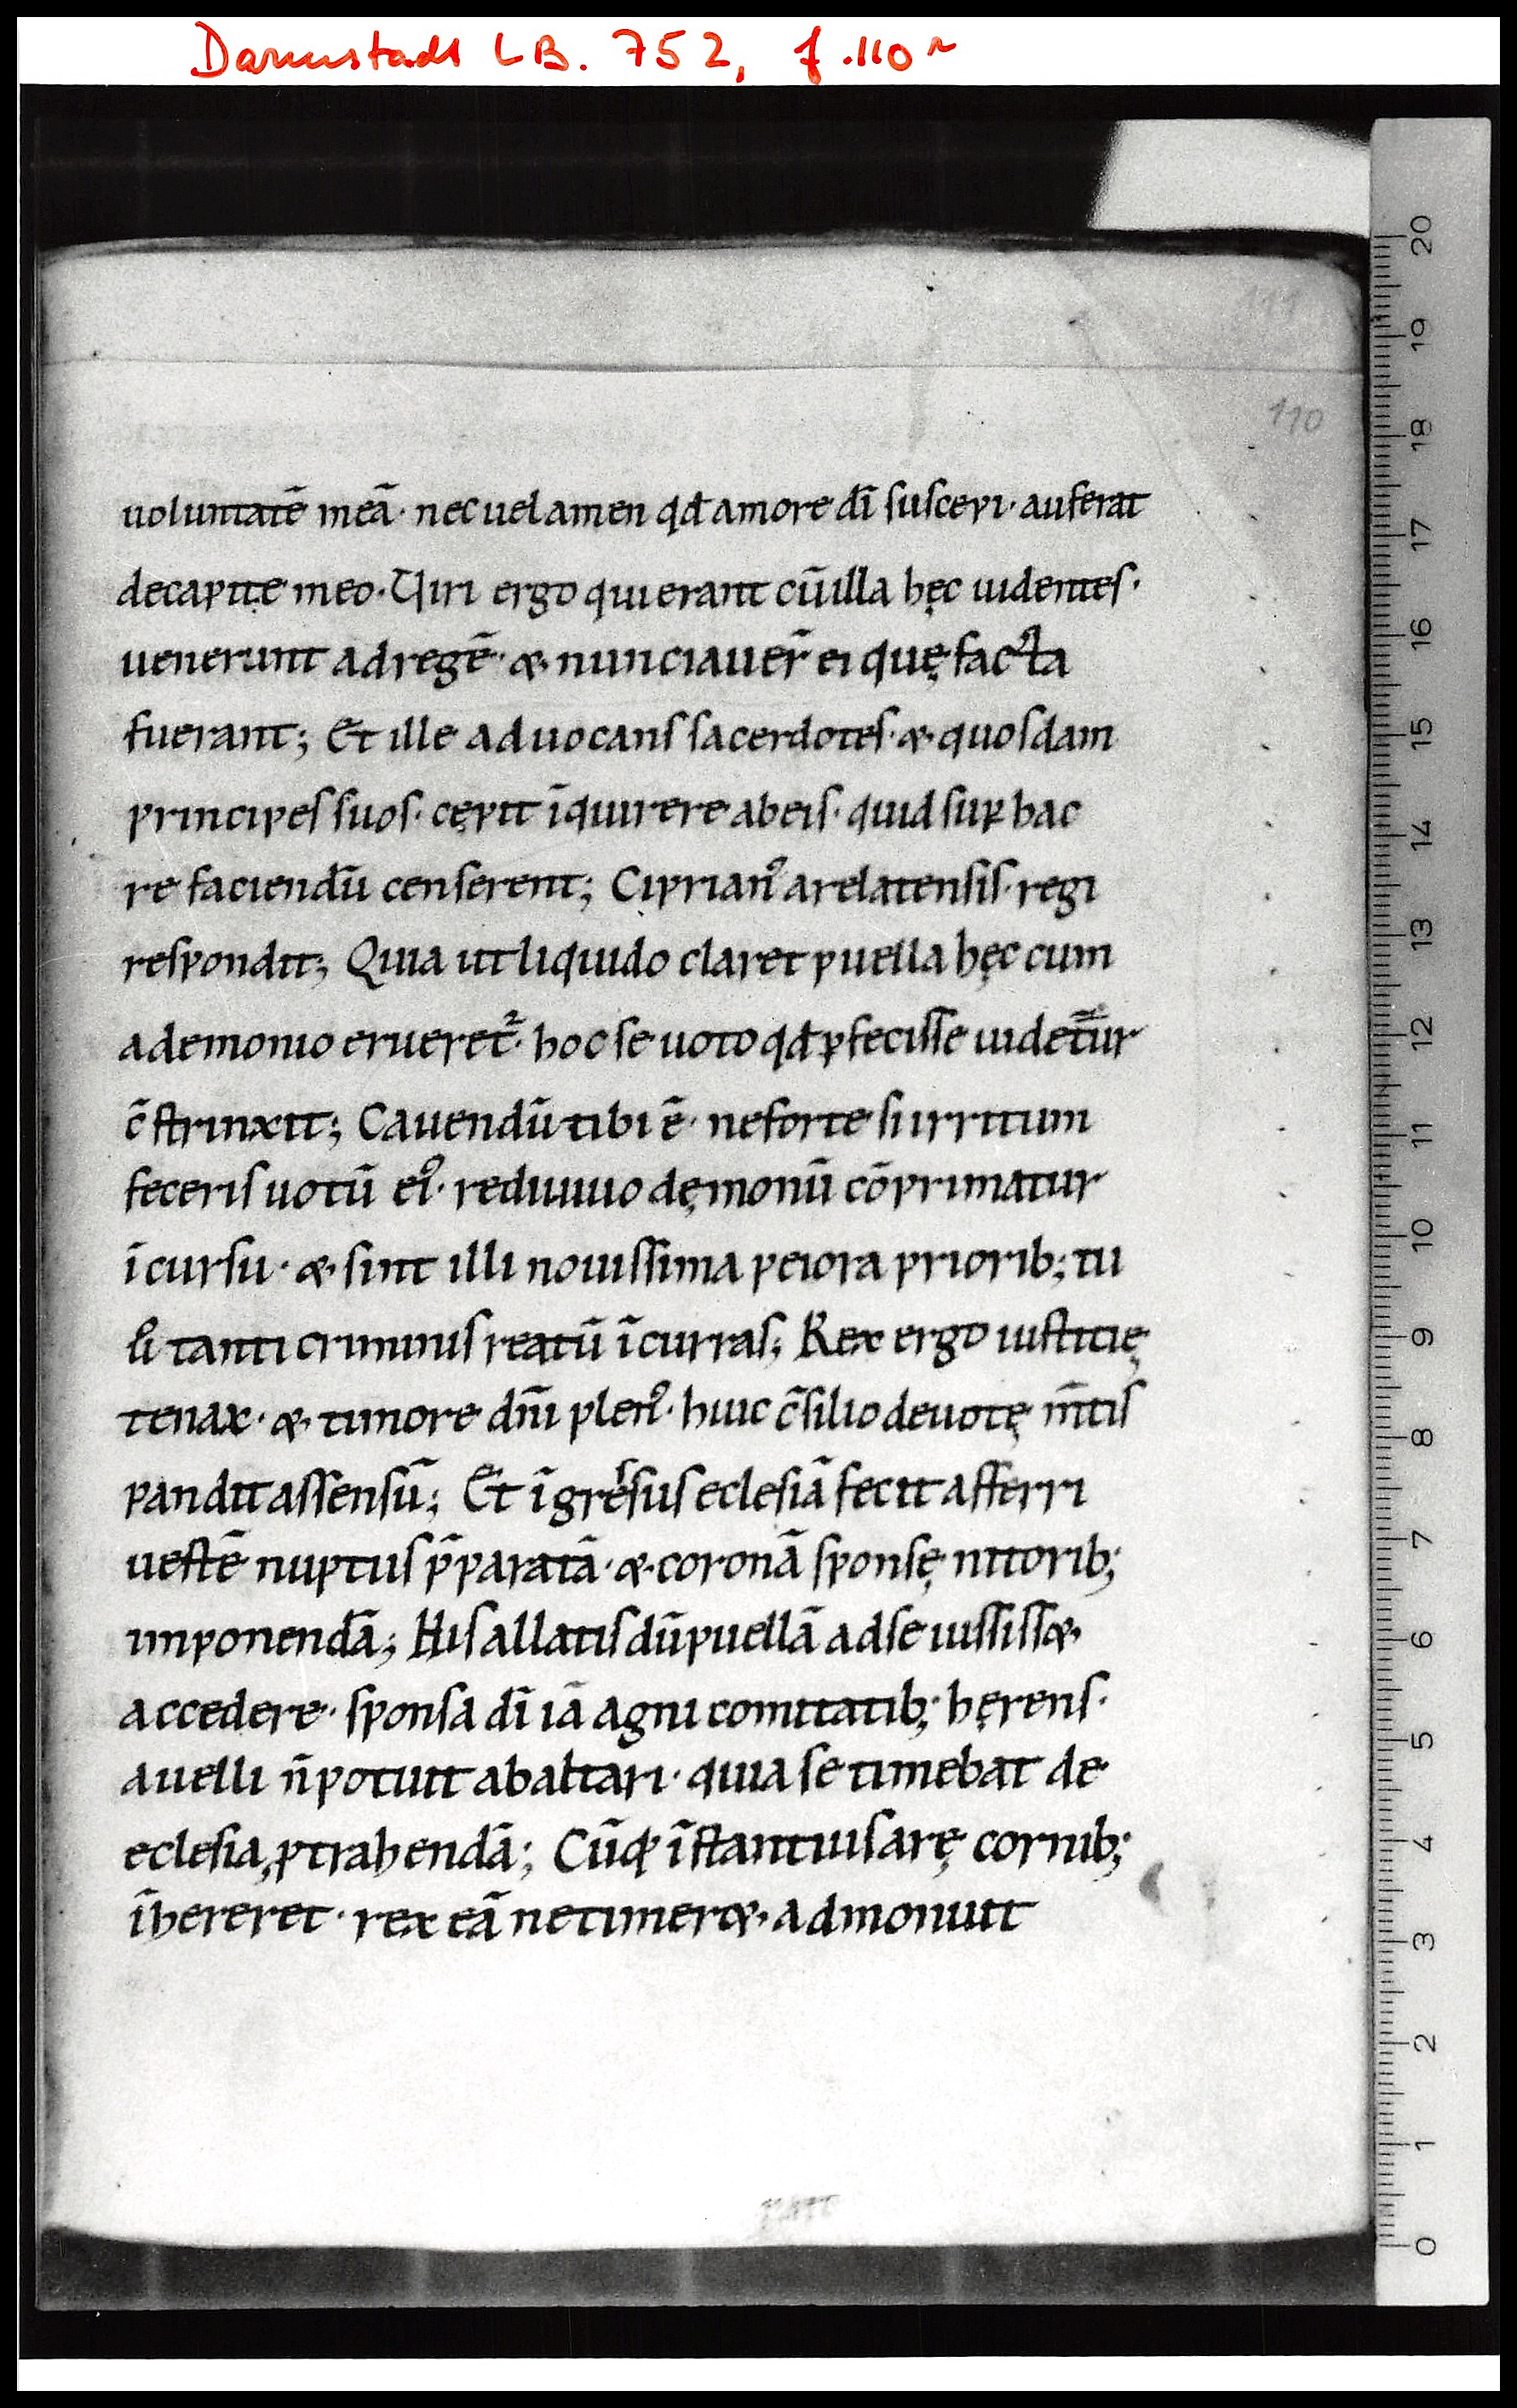 Darmstadt LB. 752, f. 110r
110
uoluntatē meā · nec uelamen qđ amore dī suscepi · auferat
de capite meo · Viri ergo qui erant cū illa hęc uidentes ·
uenerunt ad regē · & nunciauer̄ ei quę facta
fuerant; Et ille aduocans sacerdotes · & quosdam
principes suos · cępit īquirere ab eis · quid suꝑ hac
re faciendū censerent; Ciprianꝰ arelatensis · regi
respondit; Quia ut liquido claret puella hęc cum
a demonio erueret᷑ · hoc se uoto qđ ꝑfecisse uidetur
c̄strinxit; Cauendū tibi ē · ne forte si irritum
feceris uotū eiꝰ · rediuiuo dęmonū cōprimatur
īcursu · & sint illi nouissima peiora priorib; tu
ł tanti criminis reatū īcurras; Rex ergo iusticię
tenax · & timore dn̄i plenꝰ · huic c̄silio deuotę m̄tis
pandit assensū; Et īgressus eclesiā fecit afferri
uestē nuptus p̄paratā · & coronā sponsę nitorib;
imponendā; His allatis dū puellā ad se iussiss&
accedere · sponsa dī iā agni comitatib; hęrens ·
auelli n̄ potuit ab altari · quia se timebat de
eclesia ꝓtrahendā; Cūq; īstantius arę cornib;
īhereret · rex eā ne timer& · admonuit
0 1 2 3 4 5 6 7 8 9 10 11 12 13 14 15 16 17 18 19 20